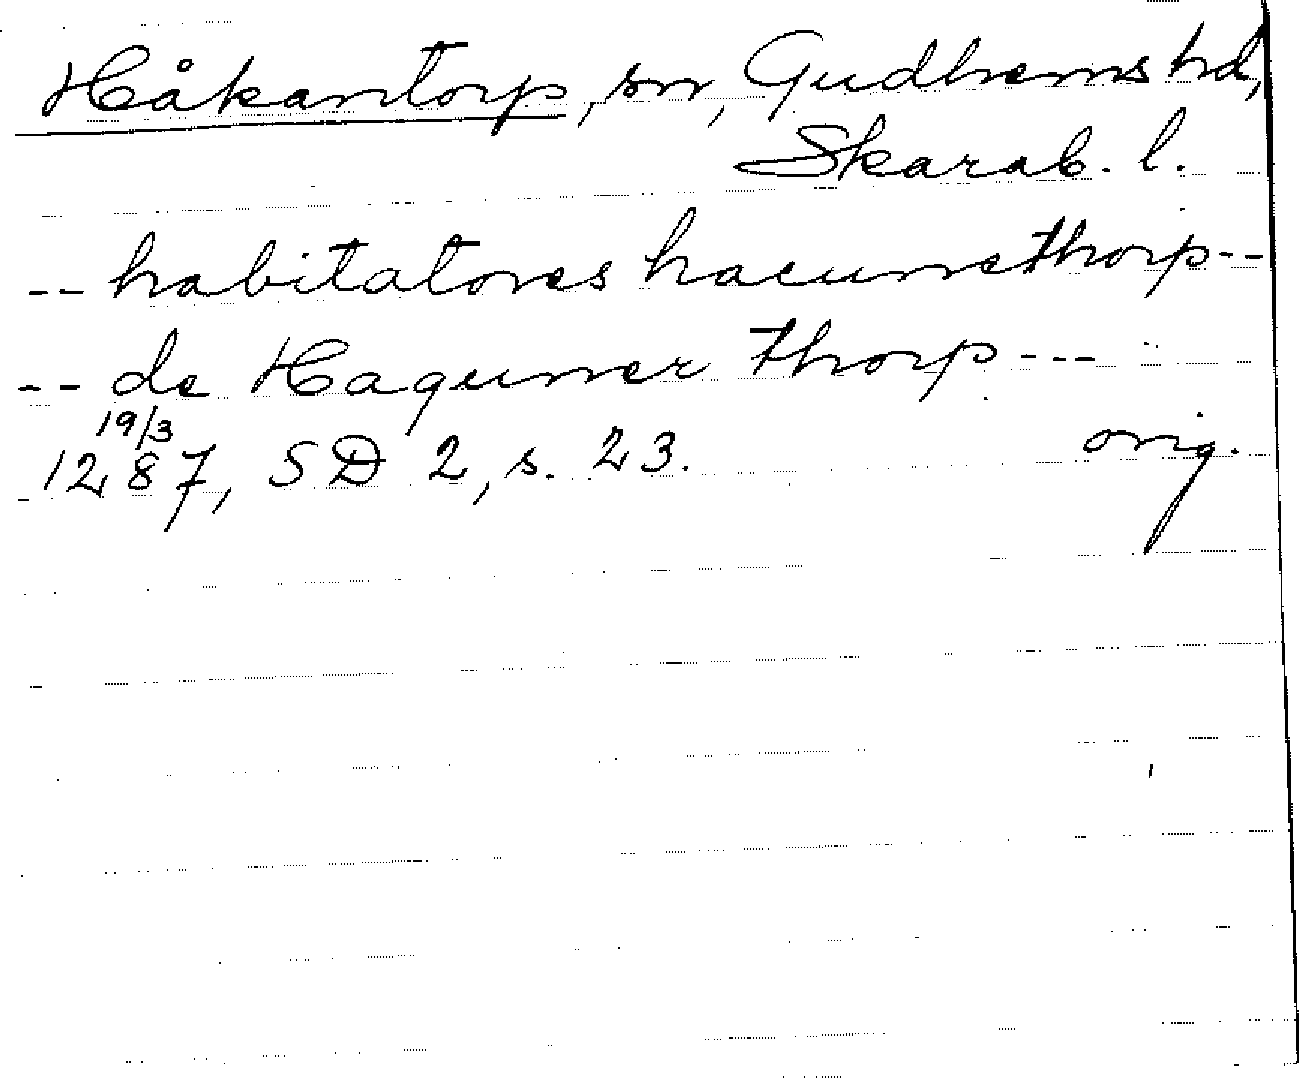 Håkantorp, sn, Gudhems hd,
Skarab. l.
-- habitatores hacunethorp --
-- de Haquner thorp ---
19/3
1287, SD 2, s. 23. orig.